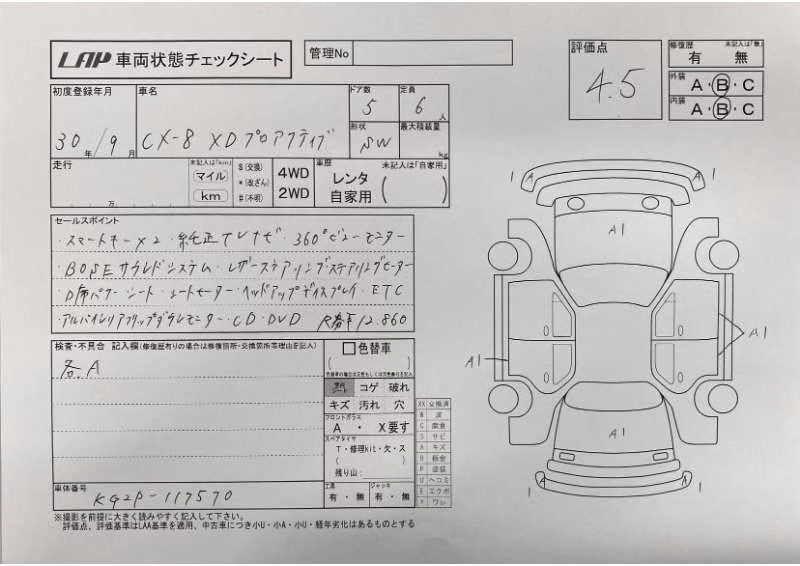 LAP 車両状態チェックシート
管理No
評価点
4.5
修復歴 未記入は「無」
有 無
外装 A・B・C
内装 A・B・C
初度登録年月
30年/9月
車名
CX-8 XDプロアクティブ
ドア数
5
定員
6人
形状
SW
最大積載量
kg
走行
万
未記入は「km」
マイル
km
$(交換)
*(改ざん)
#(不明)
4WD
2WD
車歴 未記入は「自家用」
レンタ
自家用 ( )
セールスポイント
・スマートキー×2 ・純正TVナビ ・360°ビューモニター
・BOSEサウンドシステム ・レザーステアリング・ステアリングヒーター
・D席パワーシート ・シートヒーター ・ヘッドアップディスプレイ ・ETC
・アルパインリアフリップダウンモニター ・CD・DVD R券¥12.860
検査・不具合 記入欄(修復歴有りの場合は修復箇所・交換箇所等理由を記入)
各A
色替車
( )
シート
コゲ 破れ
キズ 汚れ 穴
フロントガラス
A ・ X要す
スペアタイヤ
T・修理kit・欠・ス
( )
残り山:
工具
有・無
ジャッキ
有・無
車体番号
KG2P-117570
XX 交換済
W 波
C 腐食
S サビ
A キズ
B 板金
P 塗装
U ヘコミ
E エクボ
Y ワレ
1 A A 1
A1
A1
A1
A1
1 A A 1
※撮影を前提に大きく読みやすく記入して下さい。
評価点、評価基準はLAA基準を適用、中古車につき小U・小A・小U・経年劣化はあるものとする